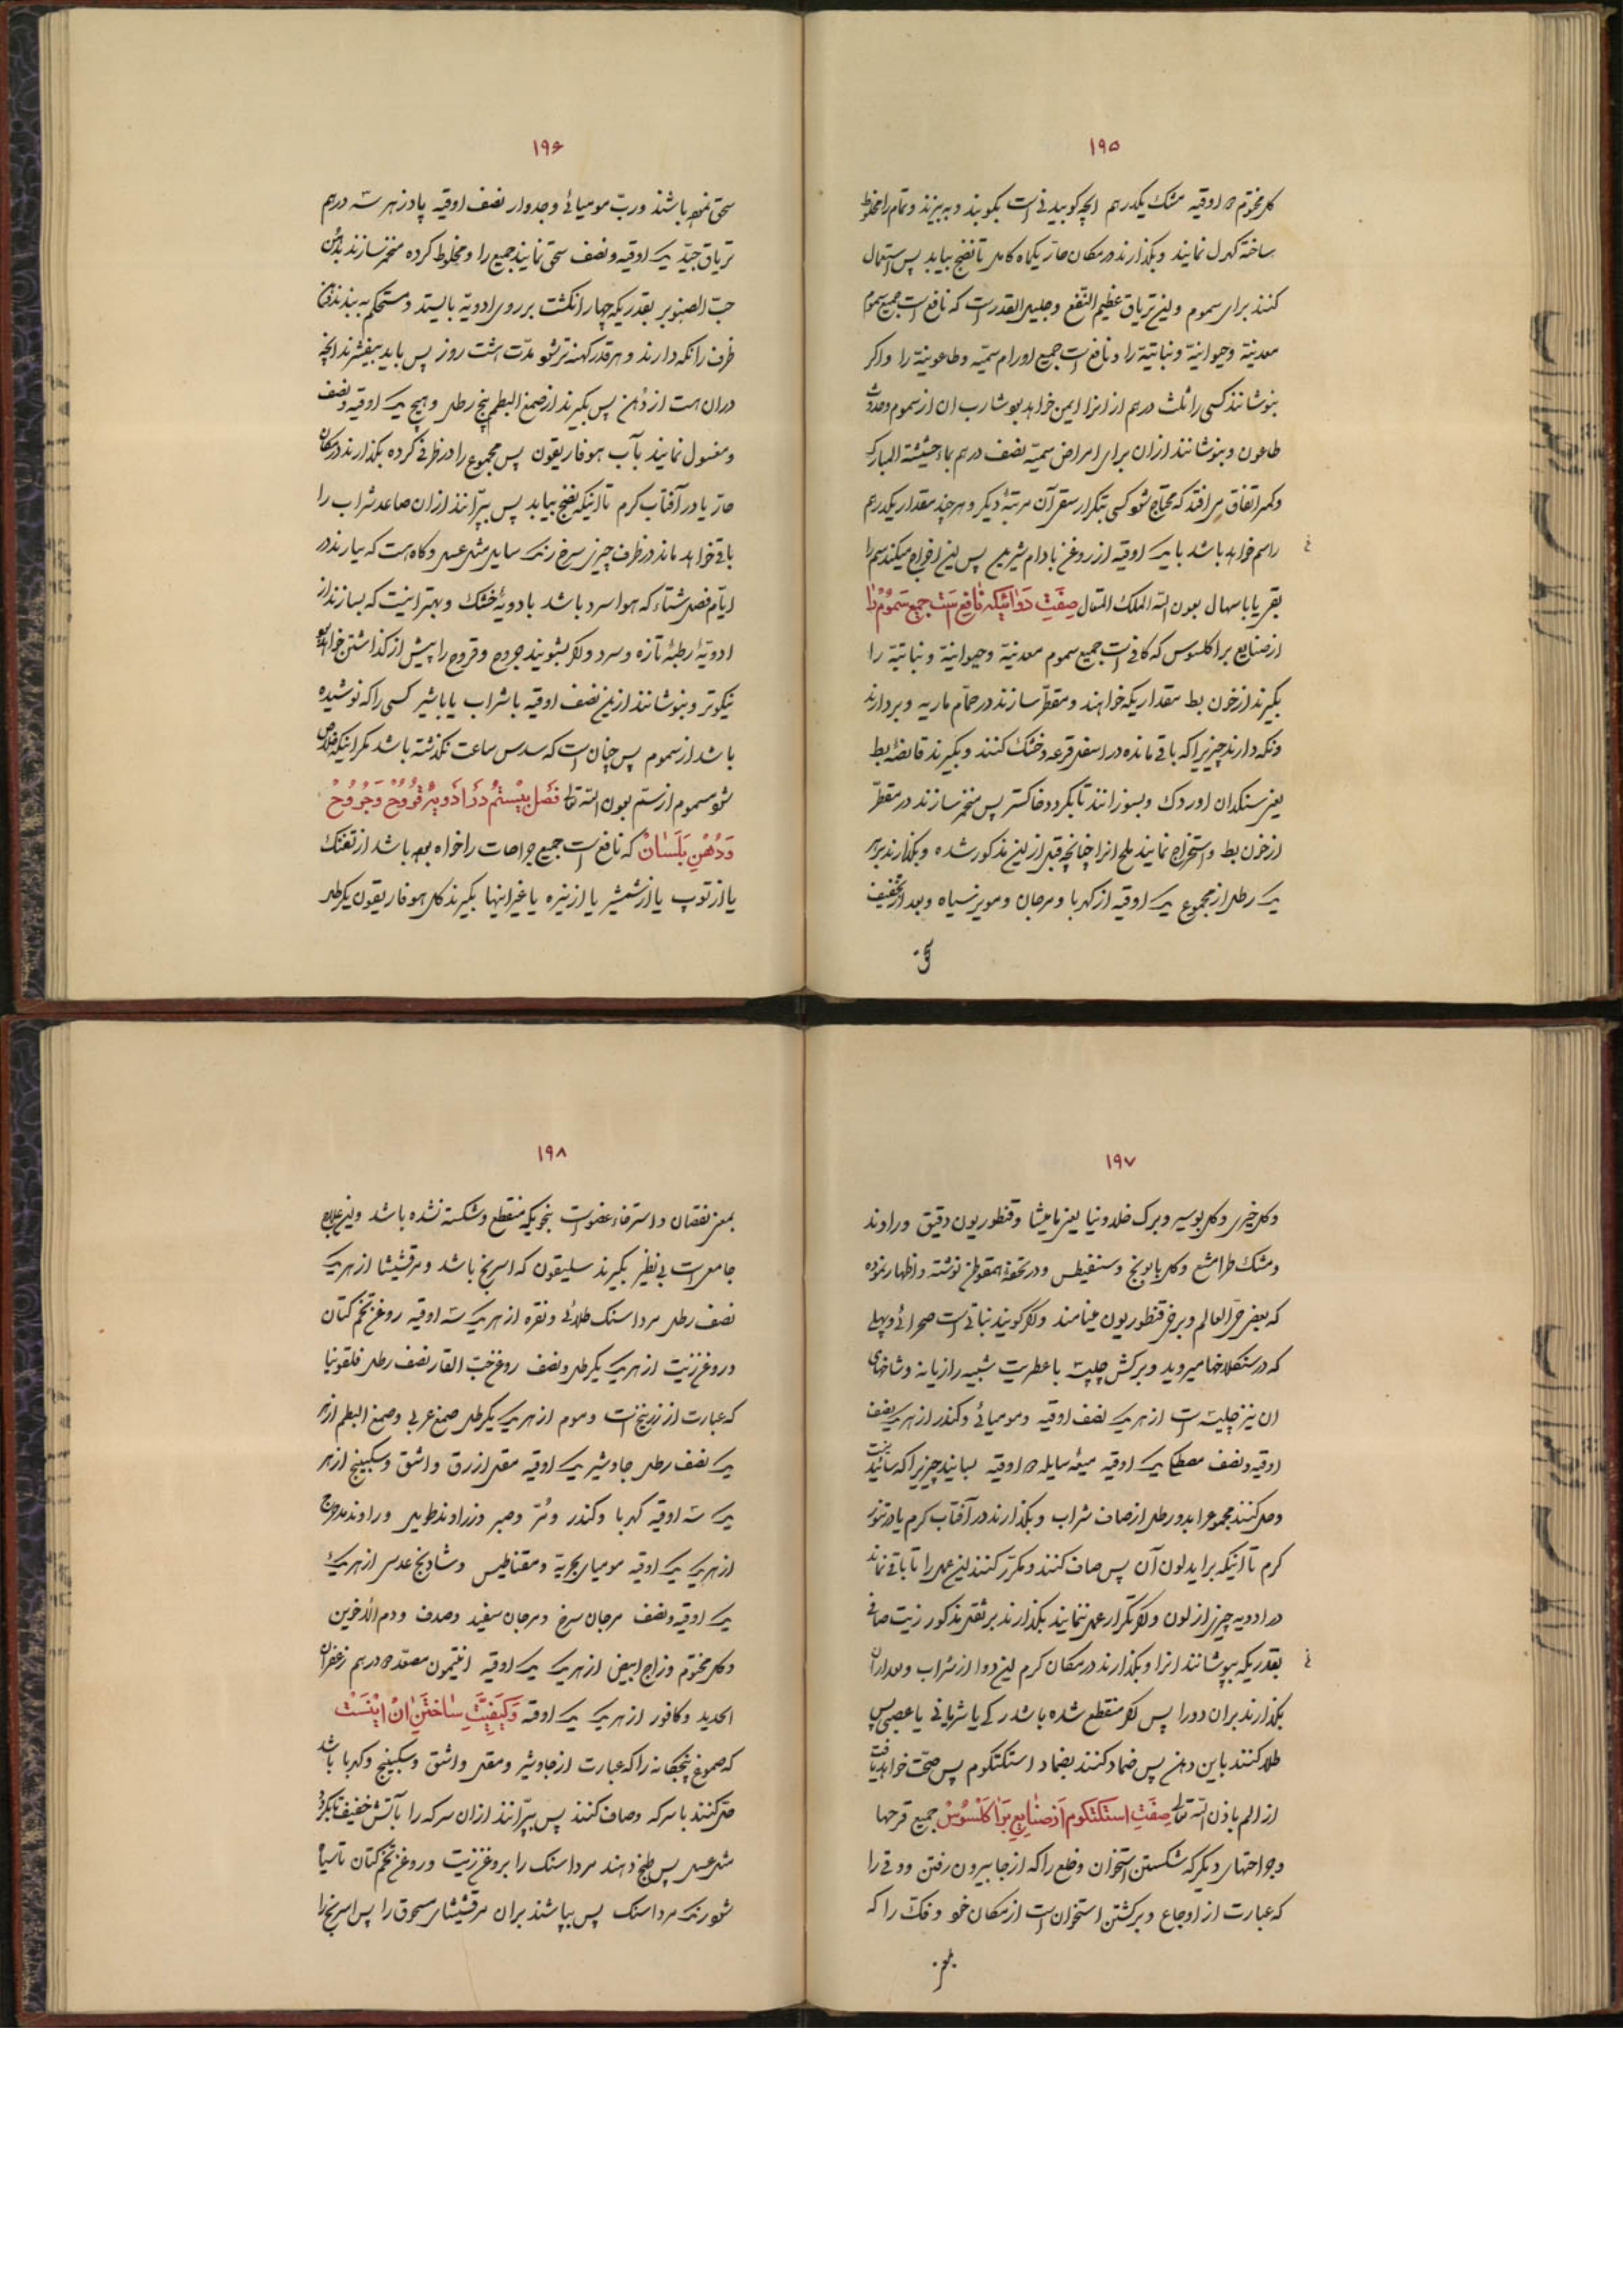 ۱۹۵
کل مختوم ۵ اوقیه مشک یکدرهم انچه کوبیدنی است بکوبند و به بیزند و تمام را مخلوط
ساخته کهرل نمایند و بکذارند در مکان حار یکماه کامل تا نضج بیابد پس استعمال
کنند برای سموم و این تریاق عظیم النفع و جلیل القدر است که نافع است جمیع سموم
معدنیة و حیوانیة و نباتیة را و نافع است جمیع اورام سمیّه و طاعونیة را و اکر
بنوشانند کسی را ثلث درهم از انرا ایمن خواهد بود شارب ان از سموم و حدوث
طاعون و بنوشانند ازان برای امراض سمیّه نصف درهم بماء حشیشة المبارکه
و کمتر اتفاق می افتد که محتاج شود کسی بتکرار سقی آن مرتبۀ دیکر و هرچند مقدار یکدرهم
راسم خواهد باشد با یک اوقیه از روغن بادام شیرین پس این اخراج میکند سم را
بقی یا باسهال بعون الله الملک المتعال صفت دوائیکه نافع است جمیع سموم را
از صنایع براکلسوس که کافی است جمیع سموم معدنیة و حیوانیة و نباتیة را
بکیرند از خون بط مقداریکه خواهند و مقطّر سازند در حمّام ماریه و بردارند
و نکه دارند چیزیرا که باقی مانده در اسفل قرعه و خشک کنند و بکیرند قانصۀ بط
یعنی سنکدان اوردک و بسوزانند تا بکردد خاکستر پس منخمر سازند در مقطّر
از خون بط و استخراج نمایند ملح انرا چنانچه قبل از این مذکور شده و بکذارند بر هر
یک رطل از مجموع یک اوقیه از کهربا و مرجان و مویز سیاه و بعد از تخفیف
سحق
۱۹۶
سحق نموده باشند و ربّ مومیائی و جدوار نصف اوقیه پادزهر سه درهم
تریاق جیّد یک اوقیه و نصف سحق نمایند جمیع را و مخلوط کرده منخمر سازند بدهن
حبّ الصنوبر بقدریکه چهار انکشت بر روی ادویّه بایستد و مستحکم به بندند دهن
ظرف را نکه دارند و هر قدر کهنه تر شود مدّت هشت روز پس باید بیفشرند انچه
دران هست از دهن پس بکیرند از صمغ البطم پنج رطل و هیج یک اوقیه و نصف
و مغسول نمایند بآب هوفاریقون پس مجموع را در ظرفی کرده بکذارند در مکان
حار یا در آفتاب کرم تا اینکه نضج بیابد پس بپرّانند ازان صاعد شراب را
باقی خواهد ماند در ظرف چیزی سرخ رنک سایل مثل عسل و کاه هست که بیارند در
ایّام فصل شتاء که هوا سرد باشد بادویۀ خشک و بهتر اینست که بسازند از
ادویۀ رطبۀ تازه و سرد و اکر بشویند جروح و قروح را پیش از کذاشتن خواهد بود
نیکوتر و بنوشانند ازین نصف اوقیه با شراب یا با شیر کسی را که نوشیده
باشد از سموم پس چنان است که سدس ساعت نکذشته باشد مکر اینکه خلاص
شود مسموم از ستم بعون الله تعالی فصل بیستم در ادویۀ قروح و جروح
و دهن بلسان که نافع است جمیع جراحات را خواه بوده باشد از تفنک
یا از توپ یا از شمشیر یا از نیزه یا غیر اینها بکیرند کل هوفاریقون یکرطل
۱۹۷
و کل خیری و کل بوسیر و برک خلدونیا یعنی مامیشا و قنطوریون دقیق و راوند
و مشک طرامشع و کل بابونج و سنفیطس و در تحفه همقوطن نوشته و اظهار نموده
که بعضی حیّ العالم و برخی قنطوریون مینامند و اکر کویند نباتی است صحرائی و پهلی
که در سنکلاخها میروید و برکش چلیپه با عطریت شبیه رازیانه و شاخهای
ان نیز چلیپه است از هر یک نصف اوقیه و مومیائی و کندر از هر یک نصف
اوقیه و نصف مصطکی یک اوقیه میعه سایله ۵ اوقیه بسایند چیزیرا که سائیدنیست
و حل کنند مجموع را بدو رطل از صاف شراب و بکذارند در آفتاب کرم یا در تنور
کرم تا اینکه براید لون آن پس صاف کنند و مکرّر کنند این عمل را تا باقی نماند
در ادویه چیزی از لون و اکر تکرار عمل ننمایند بکذارند بر ثفل مذکور زیت صافی
بقدریکه بپوشانند انرا و بکذارند در مکان کرم این دوا از شراب و بعد ازان
بکذارند بران دورا پس اکر منقطع شده باشد رکی یا شریانی یا عصبی پس
طلا کنند باین دهن پس ضماد کنند بضماد استکتکوم پس صحّت خواهد یافت
از الم باذن الله تعالی صفت استکتکوم از صنایع براکلسوس جمیع قرحها
و جراحتهای دیکر که شکستن استخوان و خلع را که از جا بیرون رفتن و وثی را
که عبارت از اوجاع و برکشتن استخوان است از مکان خود و فک را که
بمعنی
۱۹۸
بمعنی نقصان و استرخاء عضو است بنحویکه منقطع و شکسته نشده باشد و این علاج
جامعی است بی نظیر بکیرند سلیقون که اسرنج باشد و مرقشیشا از هر یک
نصف رطل مرداسنک طلائی و نقره از هر یک سه اوقیه روغن تخم کتان
و روغن زیت از هر یک یکرطل و نصف روغن حبّ الغار نصف رطل فلقونیا
که عبارت از زرنیخ است و موم از هر یک یکرطل صمغ عربی و صمغ البطم از هر
یک نصف رطل جاوشیر یک اوقیه مقل ازرق و اشق و سکبینج از هر
یک سه اوقیه کهربا و کندر و مُرّ و صبر و زراوند طویل و راوند مدحرج
از هر یک یک اوقیه مومیای بحریة و مقناطیس و شادنج عدسی از هر یک
یک اوقیه و نصف مرجان سرخ و مرجان سفید و صدف و دم الاخوین
و کل مختوم و زاج ابیض از هر یک یک اوقیه انتیمون مصعّد ۵ درهم زعفران
الحدید و کافور از هر یک یک اوقه و کیفیّت ساختن ان اینست
که صموغ پنجکانه را که عبارت از جاوشیر و مقل و اشق و سکبینج و کهربا باشد
حل کنند با سرکه و صاف کنند پس بپرّانند ازان سرکه را بآتش خفیف تا بکردد
مثل عسل پس طبخ دهند مرداسنک را بروغن زیت و روغن تخم کتان تا سیاه
شود رنک مرداسنک پس بپاشند بران مرقشیشای مسحوق را پس اسرنج را